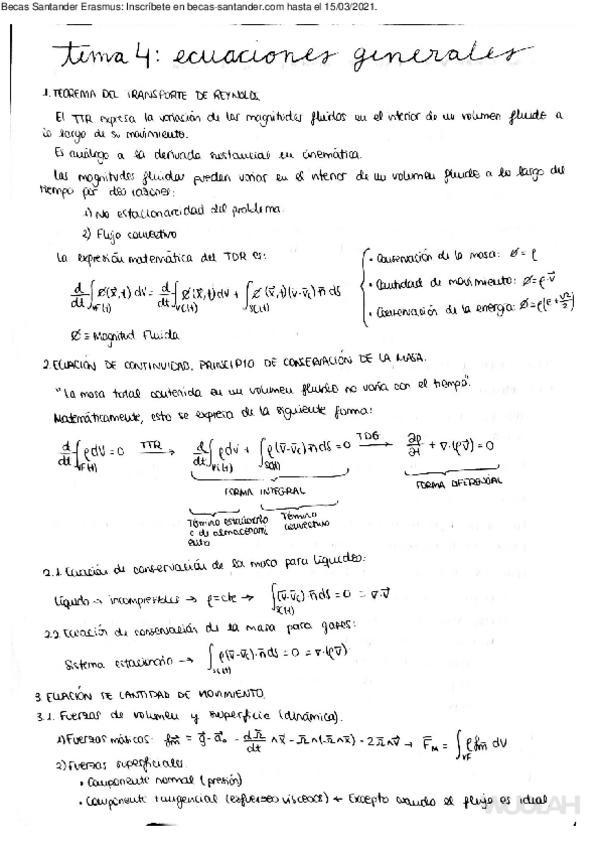 Becas Santander Erasmus: Inscríbete en becas-santander.com hasta el 15/03/2021.
tema 4: ecuaciones generales
1. TEOREMA DEL TRANSPORTE DE REYNOLDS.
El TTR expresa la variación de las magnitudes fluidas en el interior de un volumen fluido a
lo largo de su movimiento.
Es análogo a la derivada sustancial en cinemática.
Las magnitudes fluidas pueden variar en el interior de un volumen fluido a lo largo del
tiempo por dos razones:
1) No estacionareidad del problema.
2) Flujo convectivo
La expresión matemática del TDR es:
• Conservación de la masa: ø = ρ
d/dt ∫VF(t) ø(x̄,t) dV = d/dt ∫Vc(t) ø(x̄,t) dV + ∫Sc(t) ø(x̄,t)(v̄-v̄c) n̄ dS
• Cantidad de movimiento: ø = ρ·v̄
• Conservación de la energía: ø = ρ(e + v²/2)
ø ≡ Magnitud Fluida
2. ECUACIÓN DE CONTINUIDAD. PRINCIPIO DE CONSERVACIÓN DE LA MASA.
"La masa total contenida en un volumen fluido no varía con el tiempo".
Matemáticamente, esto se expresa de la siguiente forma:
d/dt ∫VF(t) ρ dV = 0 TTR → d/dt ∫Vc(t) ρ dV + ∫Sc(t) ρ(v̄-v̄c) n̄ dS = 0 TDG → ∂ρ/∂t + ∇·(ρv̄) = 0
FORMA INTEGRAL
FORMA DIFERENCIAL
Término
convectivo
2.1 Ecuación de conservación de la masa para líquidos:
Líquido → incompresibles → ρ = cte → ∫Sc(t) (v̄-v̄c) n̄ dS = 0 = ∇·v̄
2.2 Ecuación de conservación de la masa para gases:
Sistema estacionario → ∫Sc(t) ρ(v̄-v̄c)·n̄ dS = 0 = ∇·(ρv̄)
3. ECUACIÓN DE CANTIDAD DE MOVIMIENTO.
3.1. Fuerzas de volumen y superficie (dinámica).
1) Fuerzas másicas: f̄m = ḡ - ā₀ - dΩ̄/dt ∧ x̄ - Ω̄ ∧ (-Ω̄ ∧ x̄) - 2Ω̄ ∧ v̄ → F̄M = ∫VF ρ f̄m dV
2) Fuerzas superficiales.
• Componente normal (presión)
• Componente tangencial (esfuerzos viscosos) ← Excepto cuando el flujo es ideal
WUOLAH